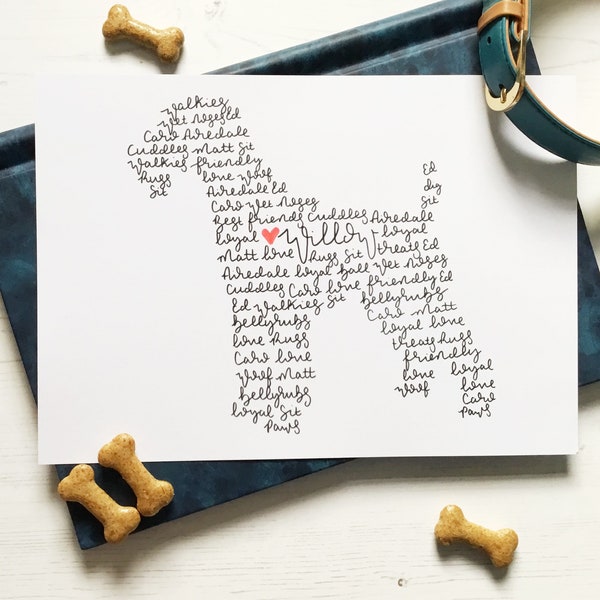 Walkies
Wet Noses Ed
Caro Airedale
Cuddles Matt Sit
Walkies friendly
Hugs love Woof
Sit Airedale Ed
Caro Wet Noses
Best friends Cuddles Airedale
loyal Willow loyal
Matt love Hugs Sit treats Ed
Airedale loyal Ball Wet Noses
Cuddles Caro love friendly Ed
Ed Walkies Sit Bellyrubs
Bellyrubs Caro Matt
love Hugs loyal love
Caro love treats Hugs
Woof Matt friendly
Bellyrubs love loyal
loyal Sit Woof love
Paws Caro
Paws
Ed
dig
Sit